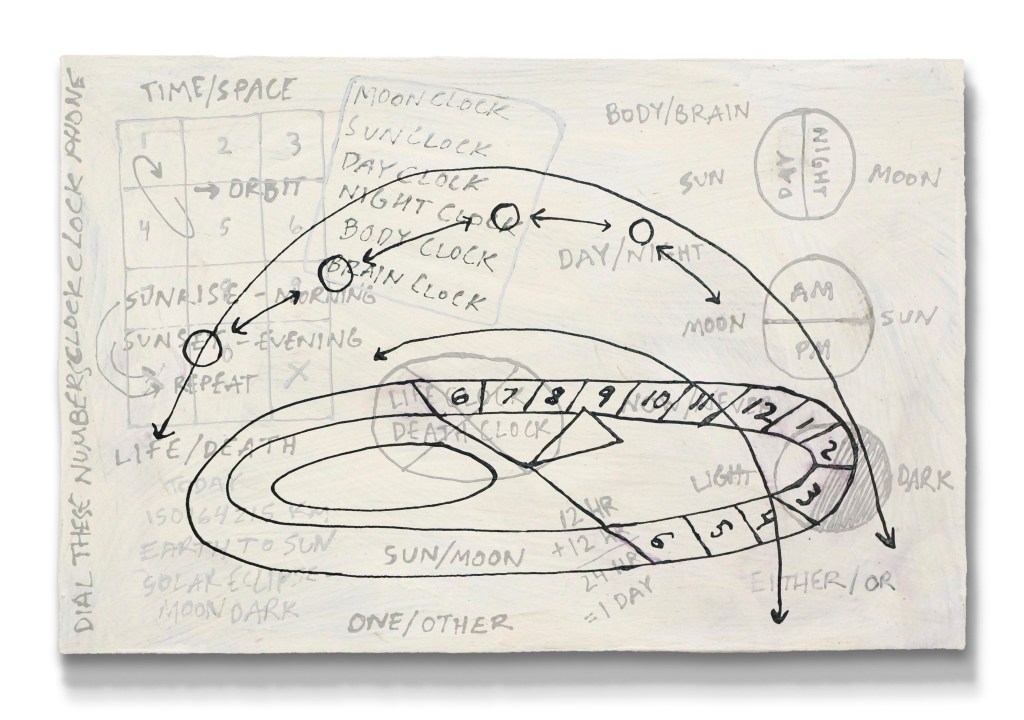 DIAL THESE NUMBERS CLOCK CLOCK PHONE
TIME/SPACE
1 2 3
→ ORBIT
4 5 6
SUNRISE - MORNING
SUNSET - EVENING
→ REPEAT X
LIFE/DEATH
TODAY
EARTH TO SUN
SOLAR ECLIPSE
MOON DARK
MOON CLOCK
SUN CLOCK
DAY CLOCK
NIGHT CLOCK
BODY CLOCK
BRAIN CLOCK
BODY/BRAIN
SUN
DAY
NIGHT
MOON
DAY/NIGHT
MOON
AM
PM
SUN
LIFE CLOCK
DEATH CLOCK
6 7 8 9 10 11 12 1 2 3 4 5 6
LIGHT
DARK
SUN/MOON
12 HR
+12 HR
24 HR
=1 DAY
EITHER/OR
ONE/OTHER